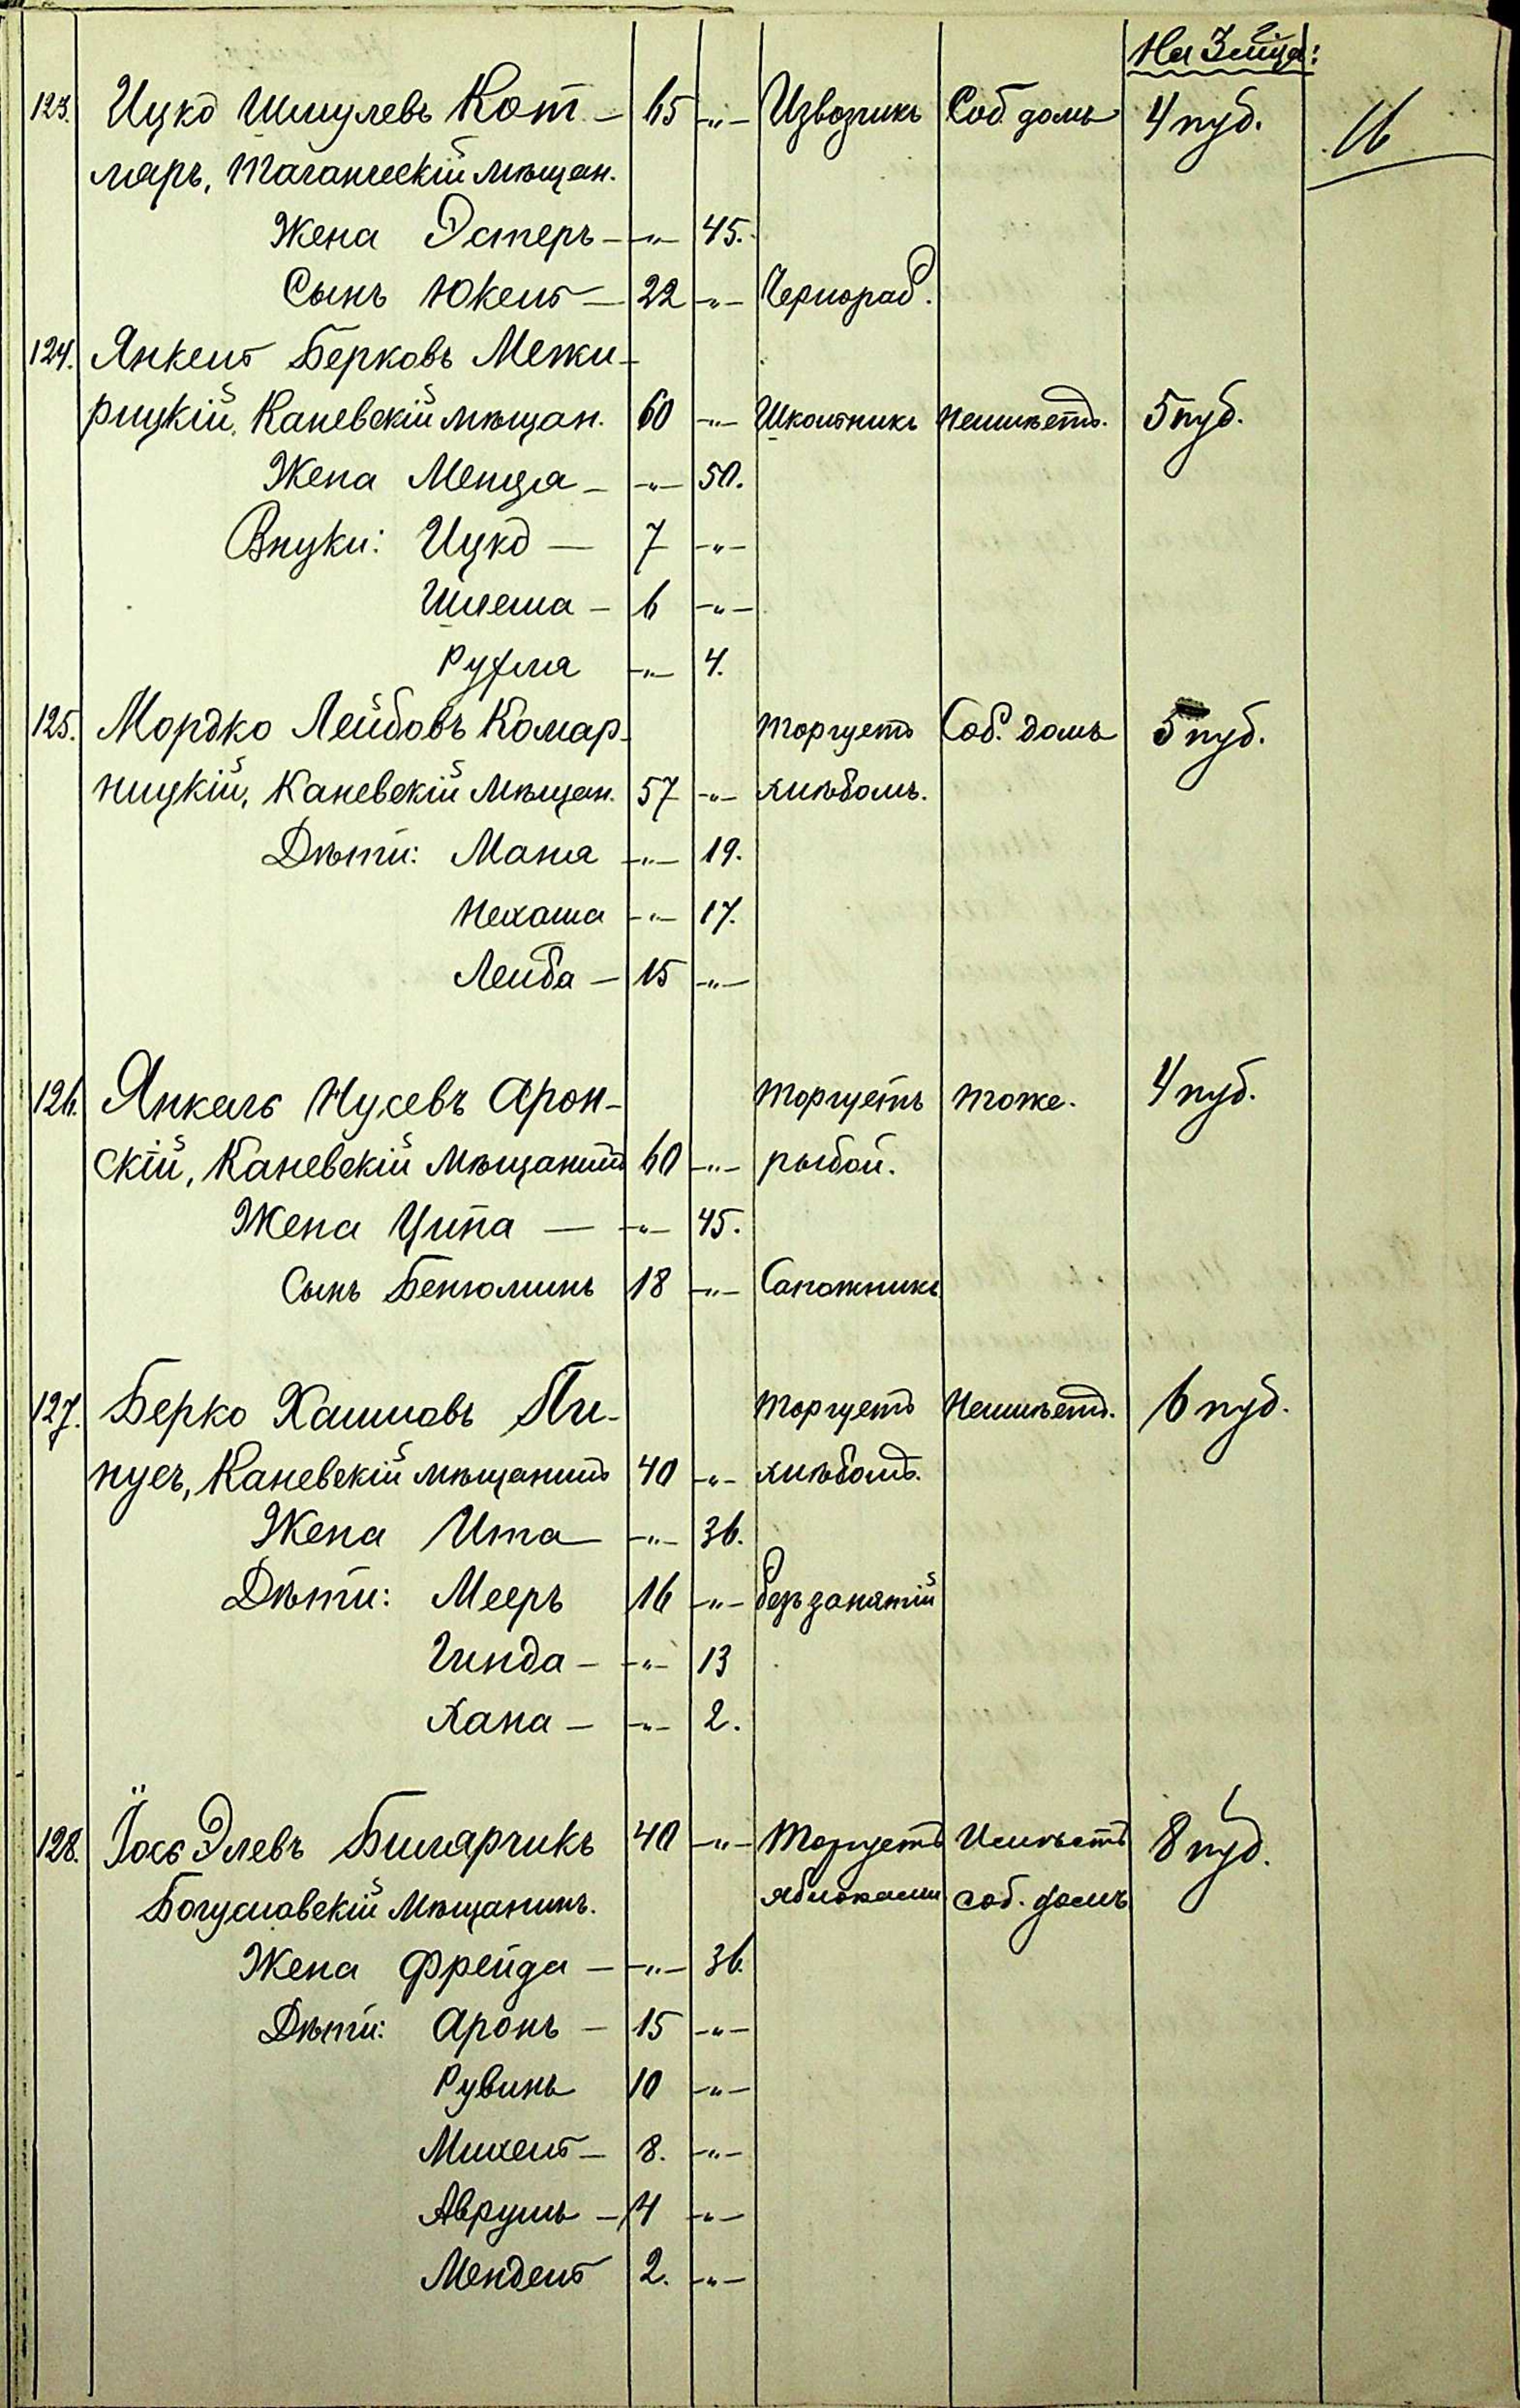 На 3 лица:
123. Ицко Шмулевъ Кот- 65 -"- Извозчикъ Соб. домъ 4 руб. 16
ляръ, Таганческій мѣщан.
Жена Эстеръ - -"- 45.
Сынъ Юкель - 22 -"- Чернораб.
124. Янкель Берковъ Межи-
рицкій, Каневскій мѣщан. 60 -"- Школьникъ Неимѣетъ. 5 руб.
Жена Менця - -"- 50.
Внуки: Ицко - 7 -"-
Шлема - 6 -"-
Рухля -"- 4.
125. Мордко Лейбовъ Комар- Торгуетъ Соб. домъ 5 руб.
ницкій, Каневскій мѣщан. 57 -"- хлѣбомъ.
Дѣти: Маня -"- 19.
Нехама -"- 17.
Лейба - 15 -"-
126. Янкель Нусевъ Арон- Торгуетъ Тоже. 4 руб.
скій, Каневскій мѣщанинъ 60 -"- рыбой.
Жена Ципа - -"- 45.
Сынъ Беньюминъ 18 -"- Сапожникъ
127. Берко Хаимовъ Пи- Торгуетъ Неимѣетъ. 6 руб.
нусъ, Каневскій мѣщанинъ 40 -"- хлѣбомъ.
Жена Ита -"- 36.
Дѣти: Мееръ 16 -"- безъ занятій
Гинда - -"- 13
Хана - -"- 2.
128. Іось Элевъ Билярчикъ 40 -"- Торгуетъ Имѣетъ 8 руб.
Богуславскій мѣщанинъ. яблоками соб. домъ
Жена Фрейда - -"- 36.
Дѣти: Аронъ - 15 -"-
Рувинъ 10 -"-
Михель - 8. -"-
Аврумъ - 4 -"-
Мендель 2. -"-